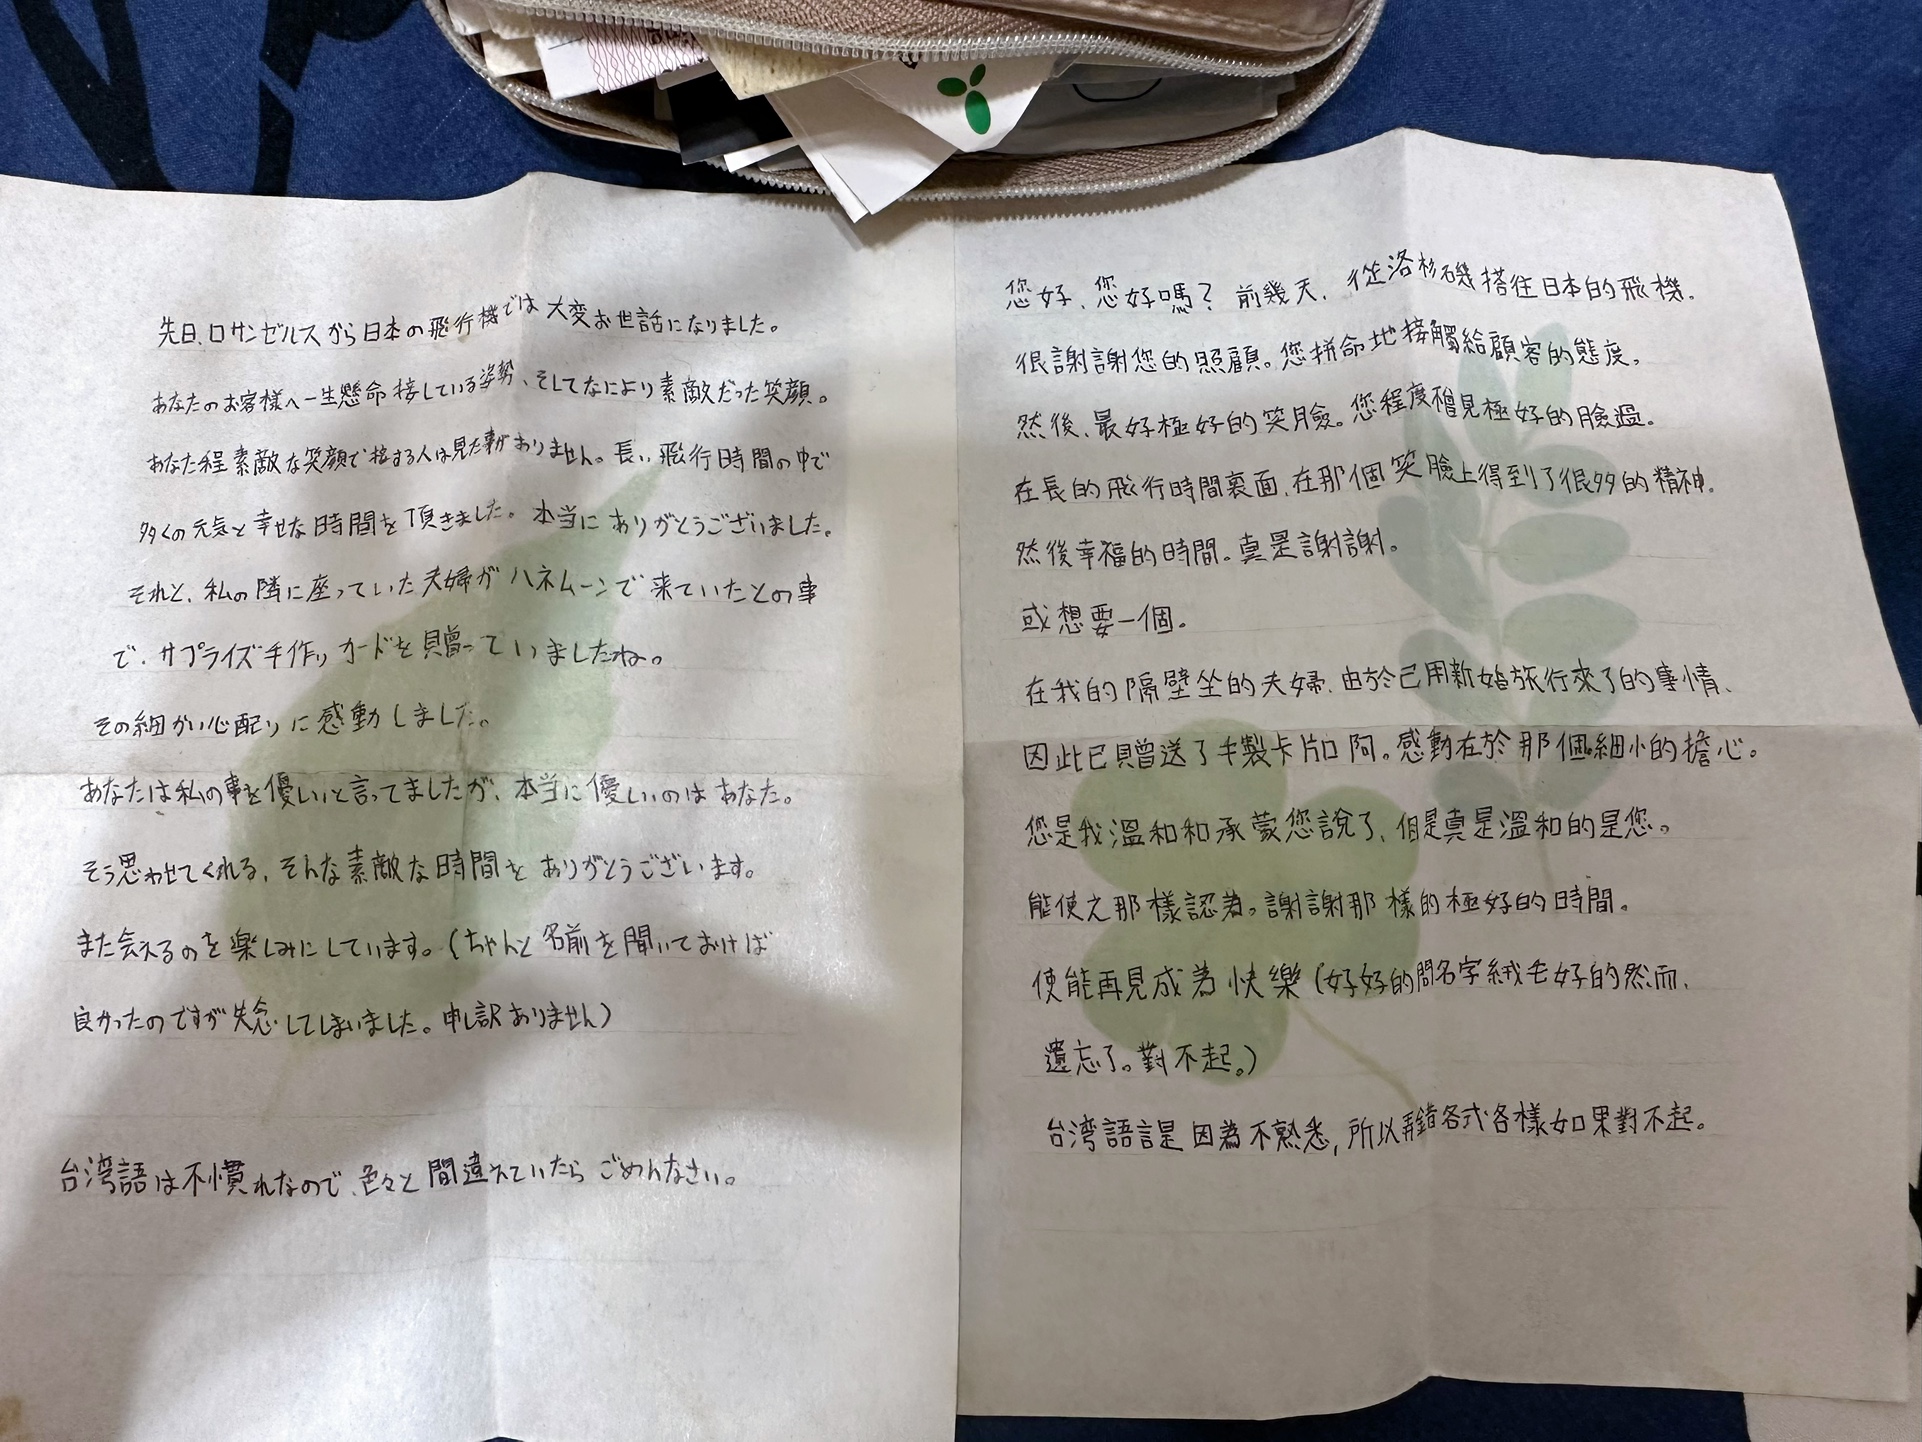 先日、ロサンゼルスから日本の飛行機では大変お世話になりました。
あなたのお客様へ一生懸命接している姿勢、そしてなにより素敵だった笑顔。
あなた程素敵な笑顔で接する人は見た事がありません。長い飛行時間の中で
多くの元気と幸せな時間を頂きました。本当にありがとうございました。
それと、私の隣に座っていた夫婦がハネムーンで来ていたとの事
で、サプライズ手作りカードを贈っていましたね。
その細かい心配りに感動しました。
あなたは私の事を優しいと言ってましたが、本当に優しいのはあなた。
そう思わせてくれる、そんな素敵な時間をありがとうございます。
また会えるのを楽しみにしています。(ちゃんと名前を聞いておけば
良かったのですが失念してしまいました。申し訳ありません)
台湾語は不慣れなので、色々と間違えていたらごめんなさい。
您好、您好嗎？前幾天、從洛杉磯搭往日本的飛機、
很謝謝您的照顧。您拼命地接觸給顧客的態度。
然後、最好極好的笑臉。您程度見極好的臉過。
在長的飛行時間裏面、在那個笑臉上得到了很多的精神。
然後幸福的時間。真是謝謝。
或想要一個。
在我的隔壁坐的夫婦、由於己用新婚旅行來了的事情、
因此已贈送了手製卡片口阿。感動在於那個細小的擔心。
您是我溫和和承蒙您說了、但是真是溫和的是您。
能使之那樣認為。謝謝那樣的極好的時間。
使能再見成為快樂(好好的問名字絨毛好的然而、
遺忘了。對不起。)
台湾語言是因為不熟悉,所以弄錯各式各樣如果對不起。